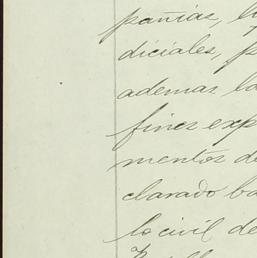 pañias, 
diciales, p
ademas la
fines exp
mentos de
clarado ba
lo civil de